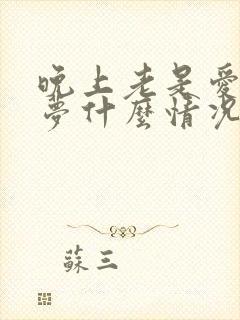 晚上老是愛
夢什麼情況
蘇三